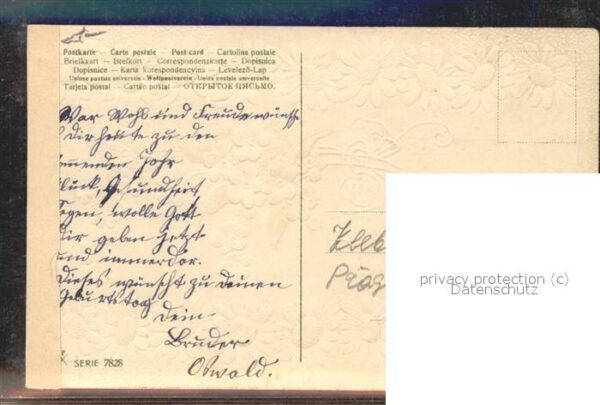 Postkarte – Carte postale – Post card – Cartolina postale
Briefkaart – Brefkort – Correspondenzkarte – Dopisnica
Dopisnice – Karta korespondencyjna – Levelező-Lap
Unione postale universale – Weltpostverein – Union postale universelle
Tarjeta postal – Cartão postal – ОТКРЫТОЕ ПИСЬМО.
War Wohl und Freude wünsche
dir heute zu den
mmenden Johr
lück, Gesundheit
Segen, wolle Gott
dir geben jetzt
und immerdor.
Dieses wünscht zu deinen
Geburtstag
Dein
Bruder
Oswald.
SERIE 7828
privacy protection (c)
Datenschutz